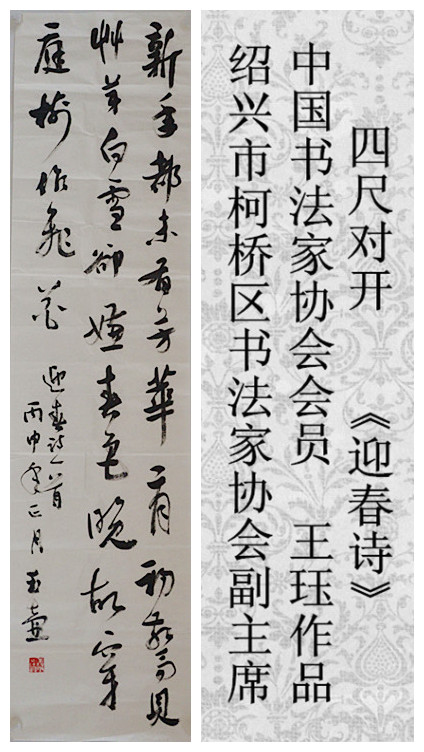 新年都未有芳華二月初驚見
艸芽白雪卻嫌春色晚故穿
庭樹作飛花
迎春詩一首
丙申年正月 玉壺
四尺对开 《迎春诗》
中国书法家协会会员 王珏作品
绍兴市柯桥区书法家协会副主席